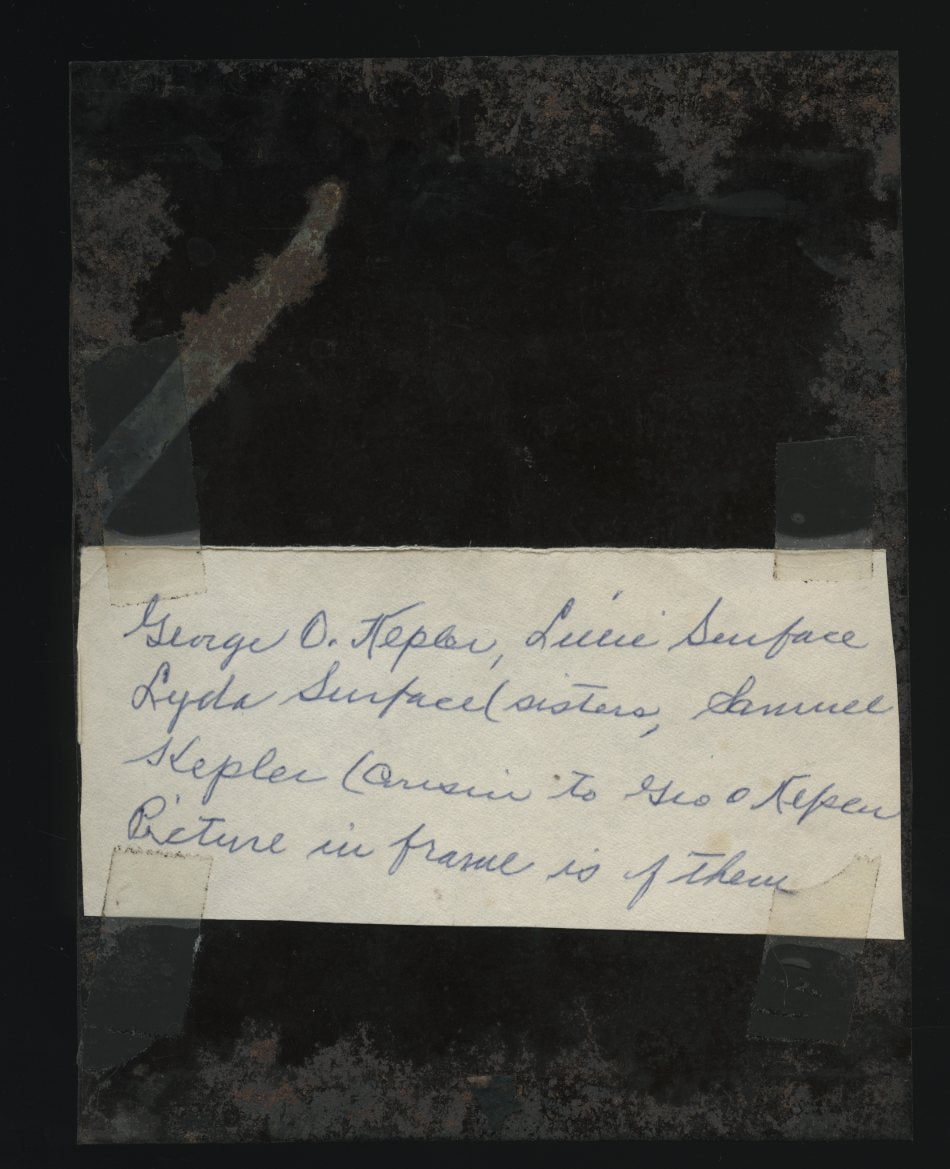 George O. Kepler, Lucie Surface
Lyda Surface (sisters, Samuel
Kepler (Cousin to Geo O Kepler
Picture in frame is of them